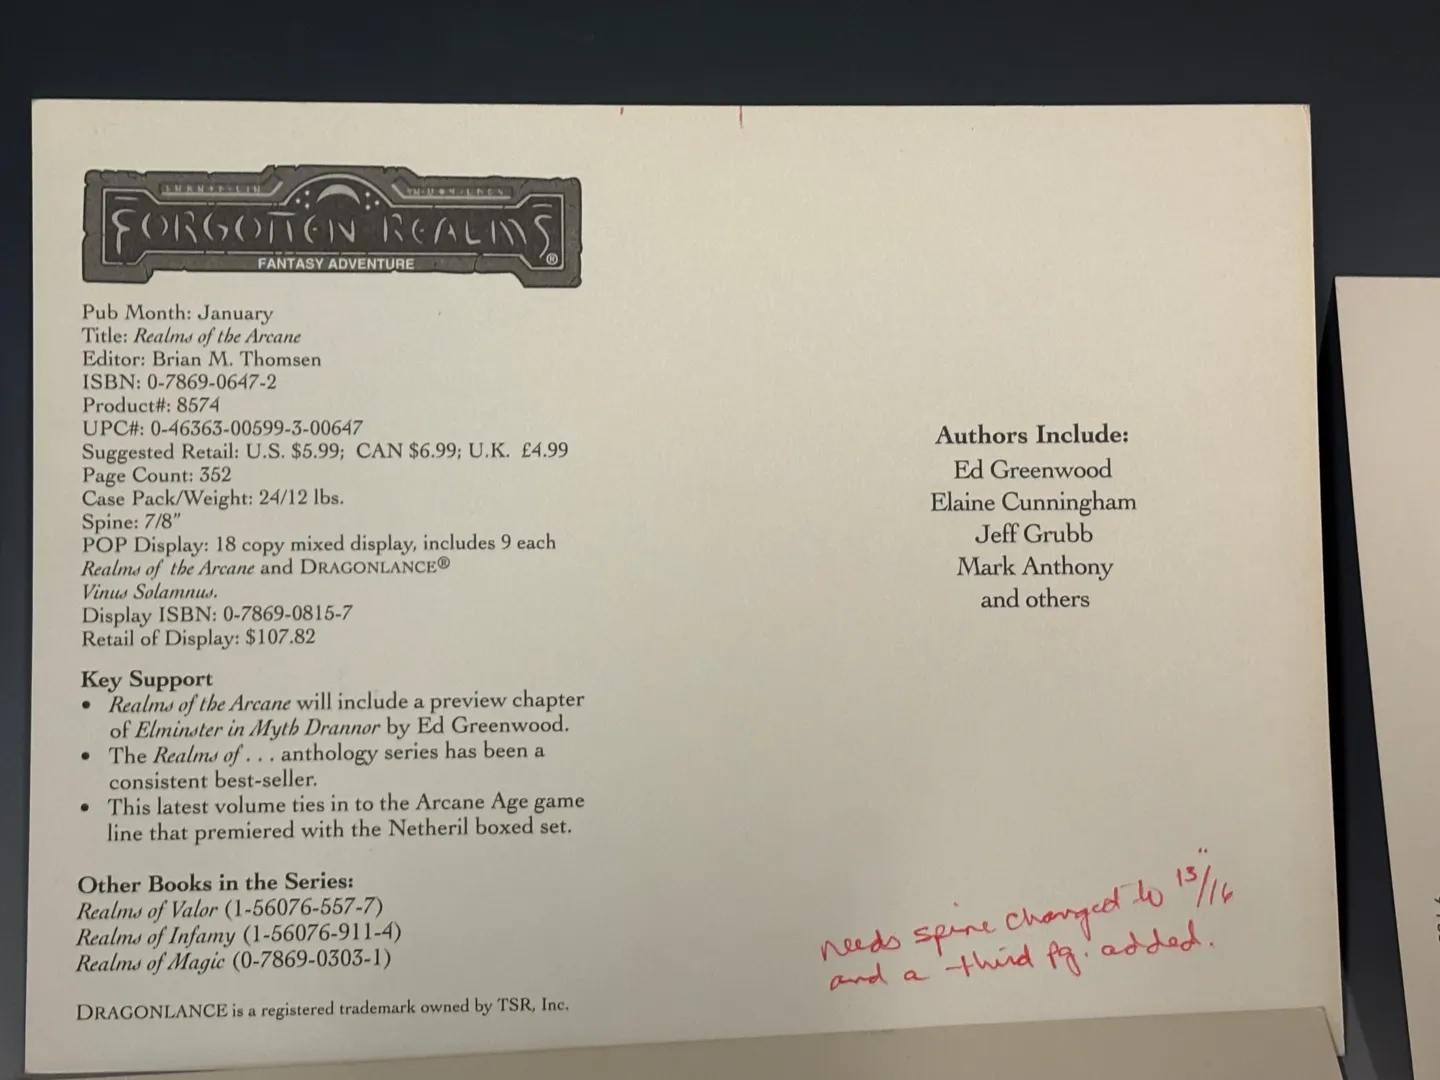 FORGOTTEN REALMS®
FANTASY ADVENTURE
Pub Month: January
Title: Realms of the Arcane
Editor: Brian M. Thomsen
ISBN: 0-7869-0647-2
Product#: 8574
UPC#: 0-46363-00599-3-00647
Suggested Retail: U.S. $5.99; CAN $6.99; U.K. £4.99
Page Count: 352
Case Pack/Weight: 24/12 lbs.
Spine: 7/8"
POP Display: 18 copy mixed display, includes 9 each
Realms of the Arcane and DRAGONLANCE®
Vinus Solamnus.
Display ISBN: 0-7869-0815-7
Retail of Display: $107.82
Key Support
• Realms of the Arcane will include a preview chapter
of Elminster in Myth Drannor by Ed Greenwood.
• The Realms of . . . anthology series has been a
consistent best-seller.
• This latest volume ties in to the Arcane Age game
line that premiered with the Netheril boxed set.
Other Books in the Series:
Realms of Valor (1-56076-557-7)
Realms of Infamy (1-56076-911-4)
Realms of Magic (0-7869-0303-1)
DRAGONLANCE is a registered trademark owned by TSR, Inc.
Authors Include:
Ed Greenwood
Elaine Cunningham
Jeff Grubb
Mark Anthony
and others
needs spine changed to 13/16"
and a third pg. added.